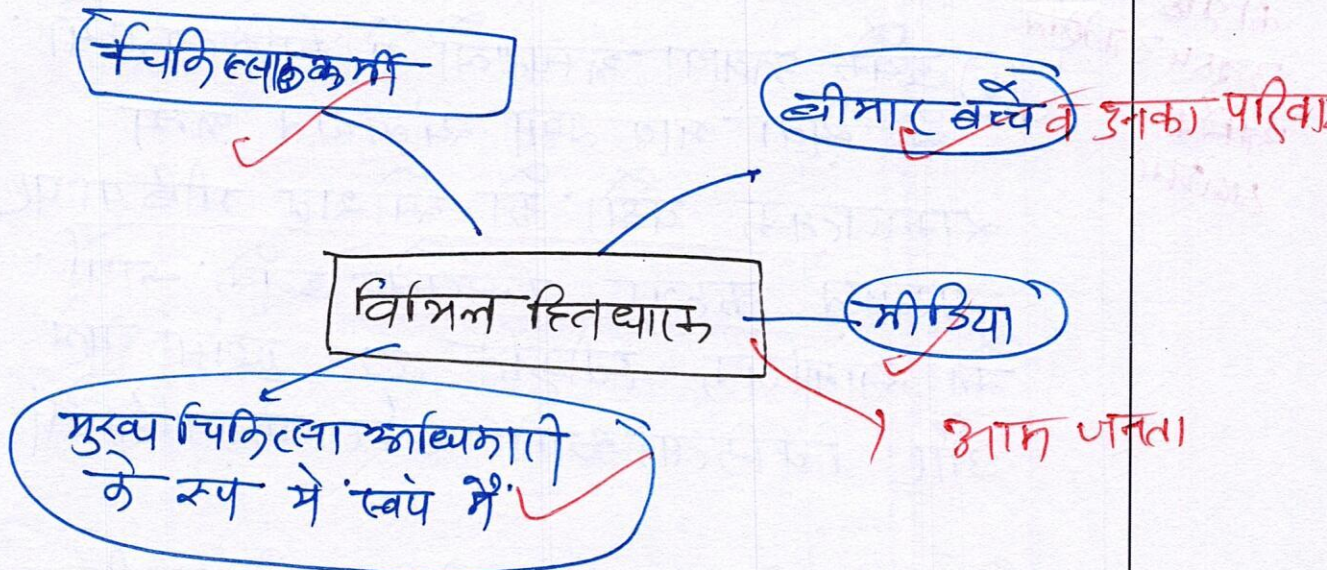 चिकित्साकर्मी
बीमार बच्चे व उनका परिवा
विभिन्न हितधारक
मीडिया
आम जनता
मुख्य चिकित्सा अधिकारी
के रूप में 'स्वयं मैं'